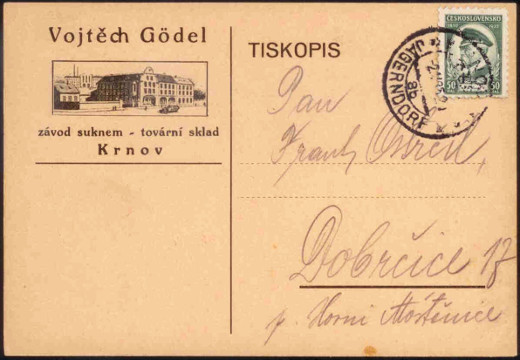 Vojtěch Gödel
závod suknem - tovární sklad
Krnov
TISKOPIS
ČESKOSLOVENSKO
50 50
JÄGERNDORF
Pan
Dobrčice 17
p. Horni Moštěnice